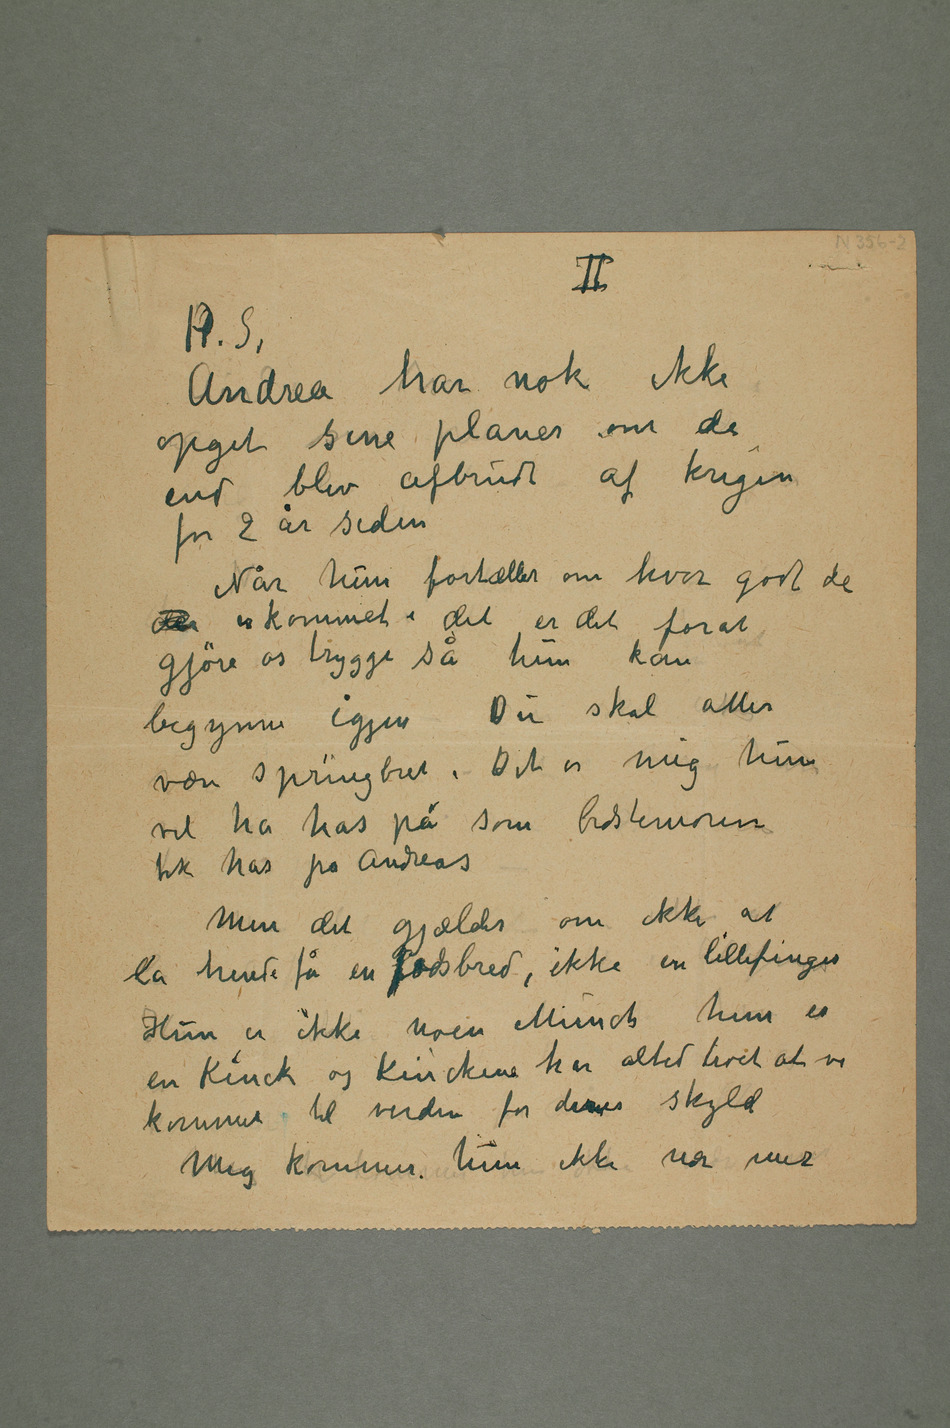 N 356-2
II
P.S,
Andrea har nok ikke
opget sine planer om de
end blev afbrudt af krigen
for 2 år siden
Når hun fortæller om hvor godt de
er kommet i det er det forat
gjöre os trygge så hun kan
begynne igjen Du skal atter
være springbret. Det er mig hun
vil ha has på som bedstemoren
fik has på Andreas
Men det gjælder om ikke at
la hende få en fodsbred, ikke en lillefinger
Hun er ikke noen Munch hun er
en Kinck og Kinckene har altid troet at vi
kommer til verden for deres skyld
Mig kommer hun ikke nær mer